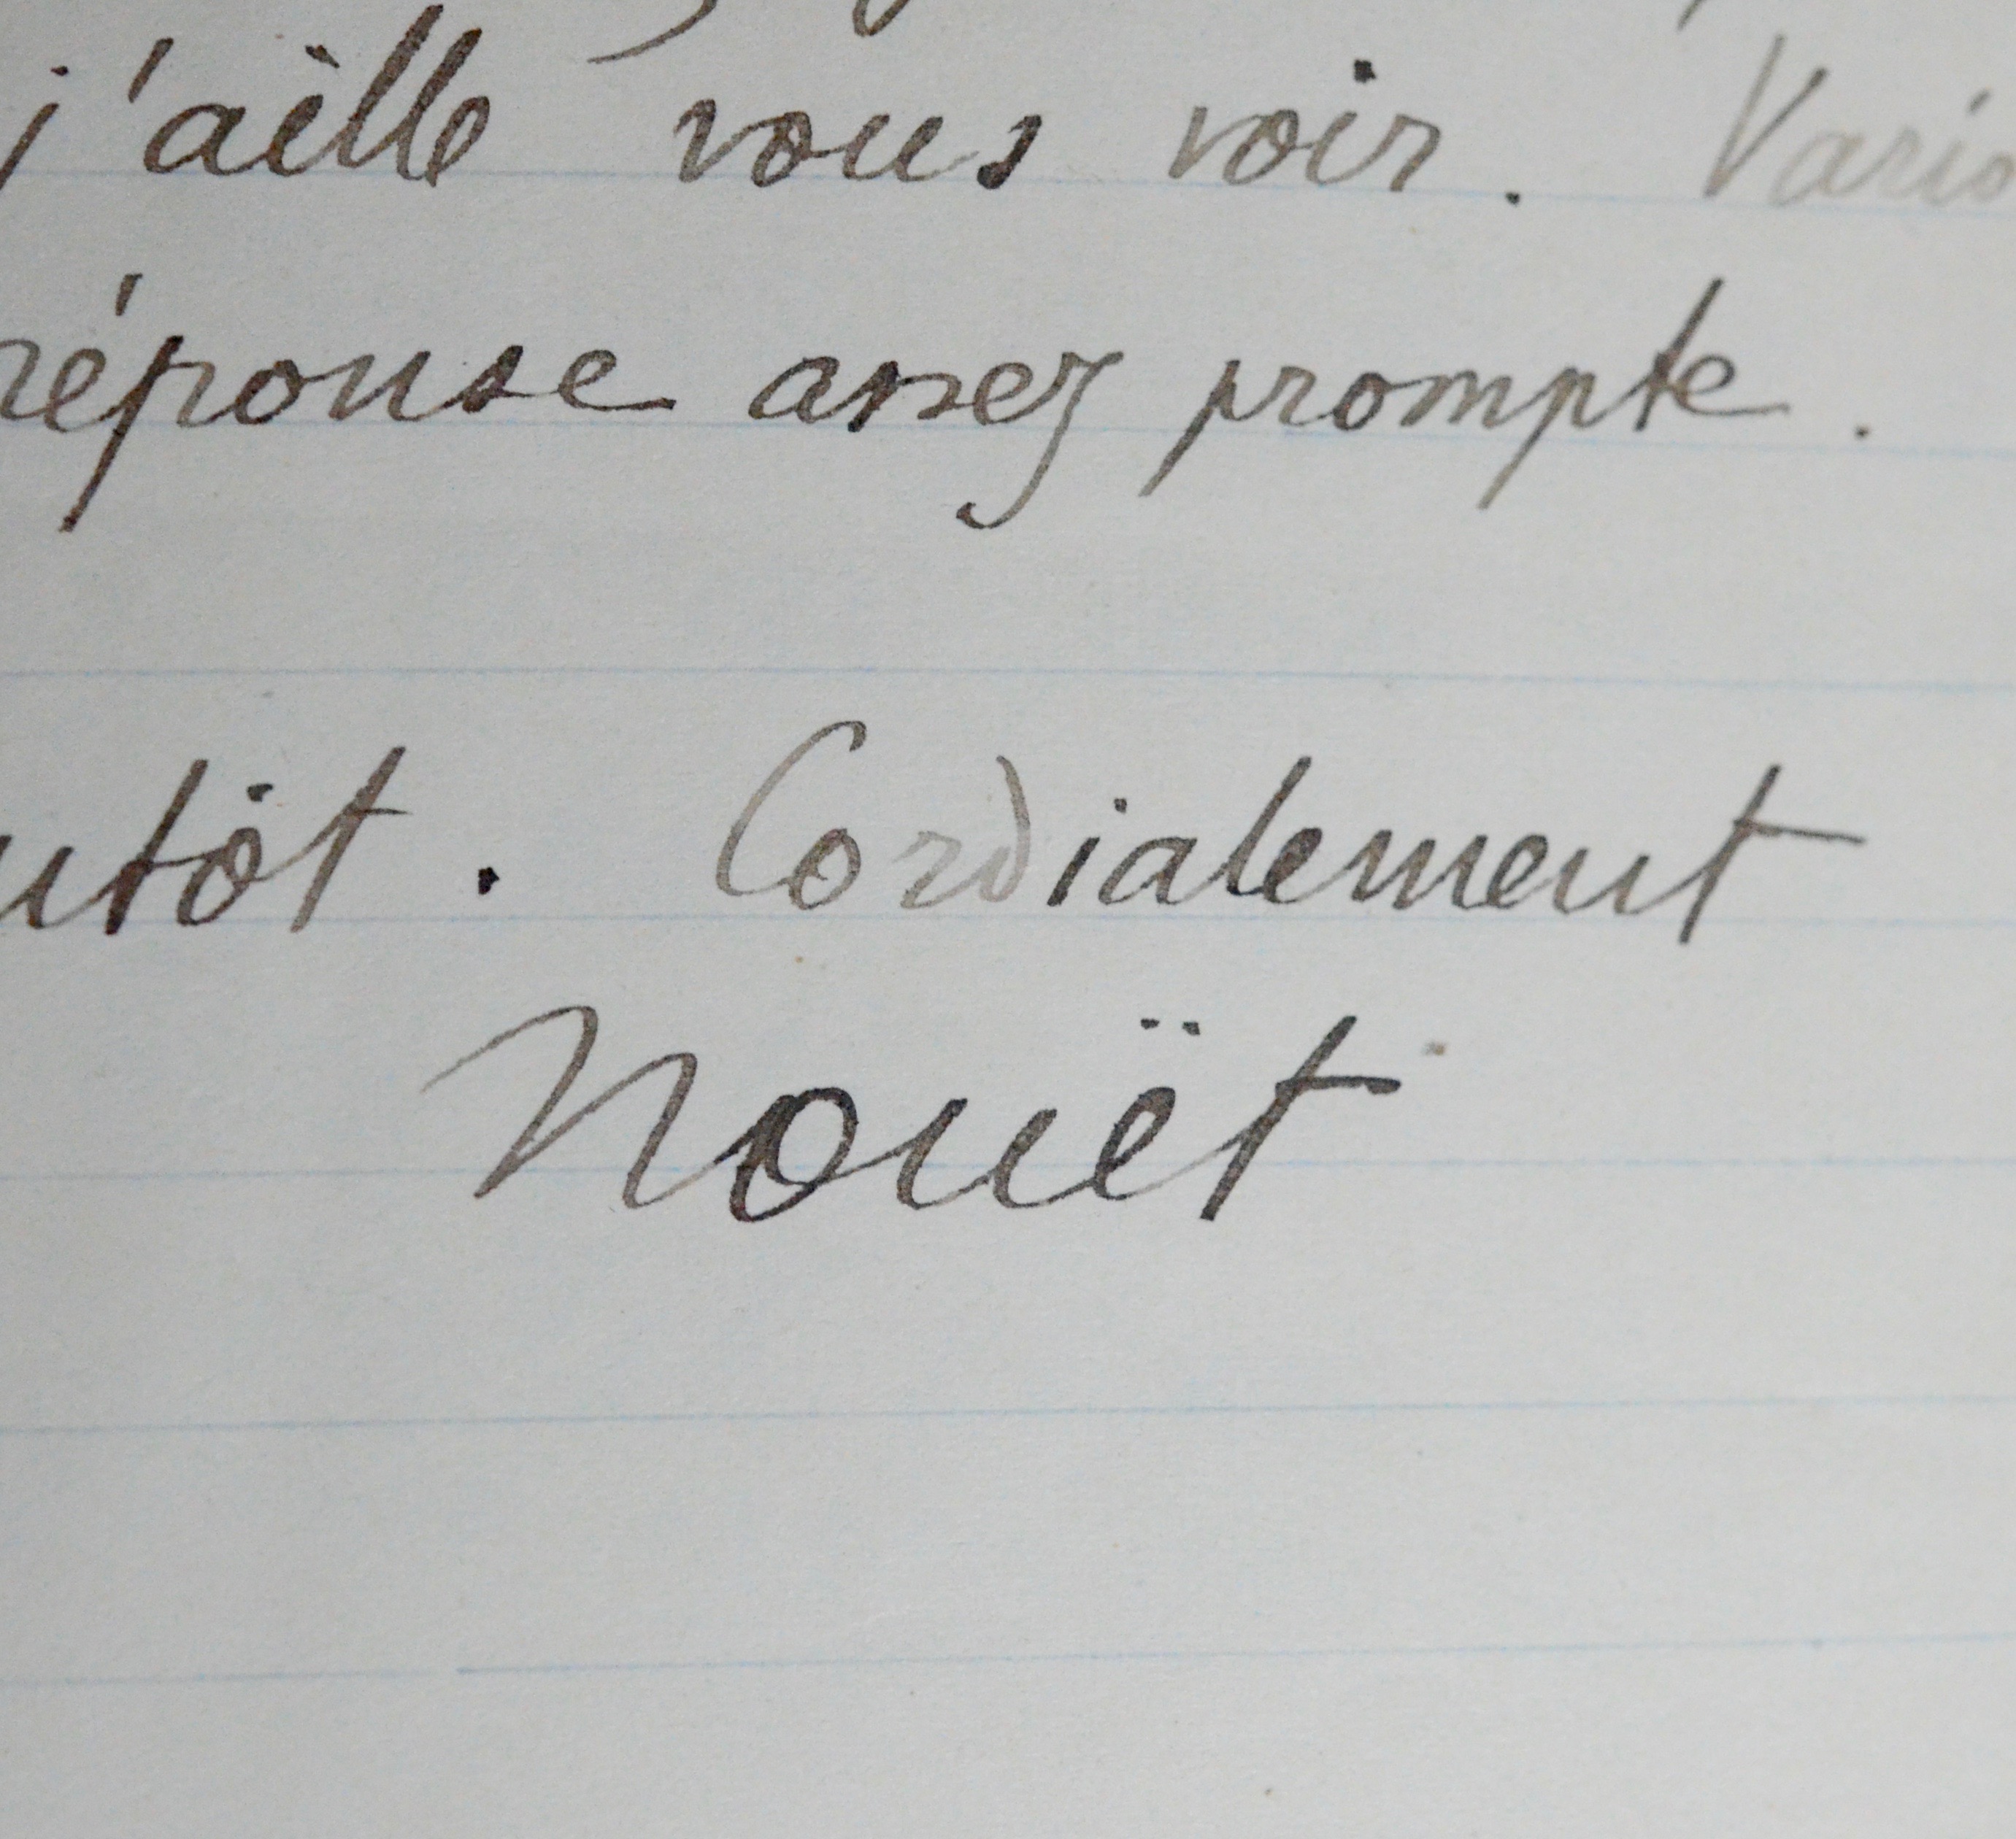 j'aille vous voir. Vario
réponse assez prompte.
utôt. Cordialement
Nouët